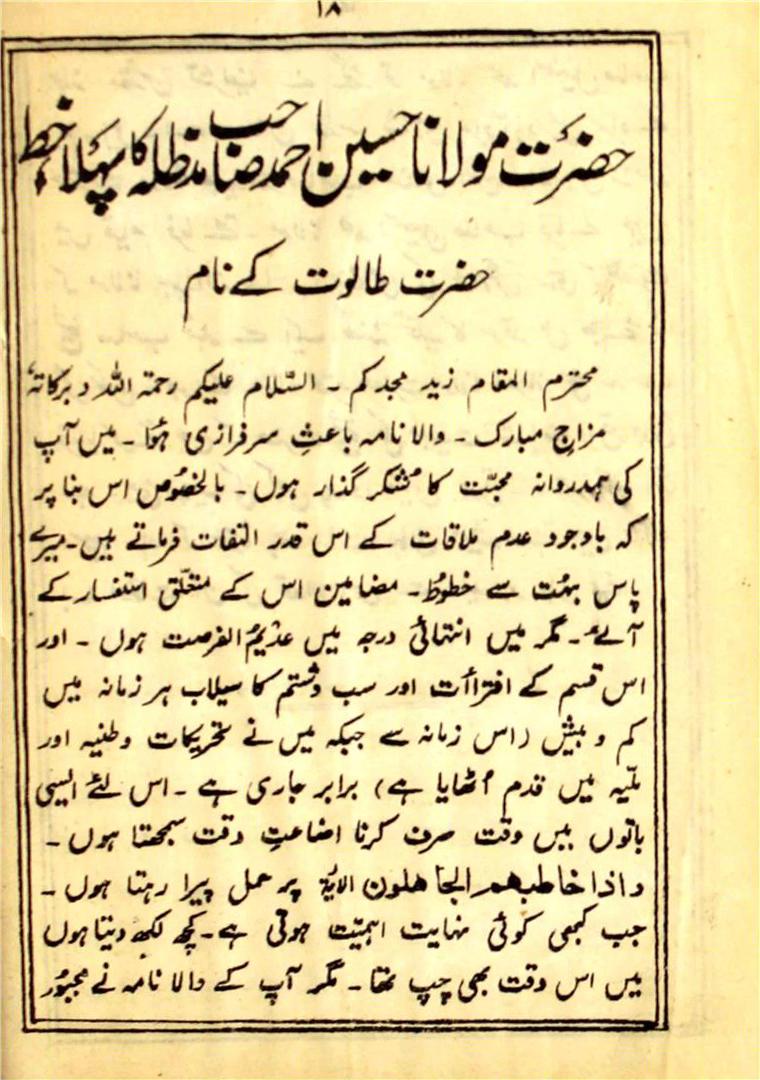 ۱۸
حضرت مولانا حسین احمد صاحب مدظلہ کا پہلا خط
حضرت طالوت کے نام
محترم المقام زید مجدکم ۔ السّلام علیکم رحمۃ اللہ و برکاتہٗ
مزاجِ مبارک ۔ والا نامہ باعثِ سرفرازی ہُوا ۔ میں آپ
کی ہمدروانہ محبّت کا مشکر گذار ہوں ۔ بالخصُوص اس بنا پر
کہ باوجود عدم ملاقات کے اس قدر التفات فرماتے ہیں ۔ میرے
پاس بہُت سے خطوُط ۔ مضامین اس کے متعلّق استفسار کے
آئے ۔ مگر میں انتہائی درجہ میں عدیمُ الفرصت ہوں ۔ اور
اس قسم کے افتراأت اور سب و شتم کا سیلاب ہر زمانہ میں
کم و بیش (اس زمانہ سے جبکہ میں نے تحریکات وطنیہ اور
ملّیہ میں قدم اُٹھایا ہے) برابر جاری ہے ۔ اس لئے ایسی
باتوں میں وقت صرف کرنا اضاعتِ وقت سمجھتا ہوں ۔
واذا خاطبھم الجاھلون الایۃ پر عمل پیرا رہتا ہوں ۔
جب کبھی کوئی نہایت اہمیّت ہوتی ہے ۔ کچھ لکھ دیتا ہوں
میں اس وقت بھی چپ تھا ۔ مگر آپ کے والا نامہ نے مجبُور